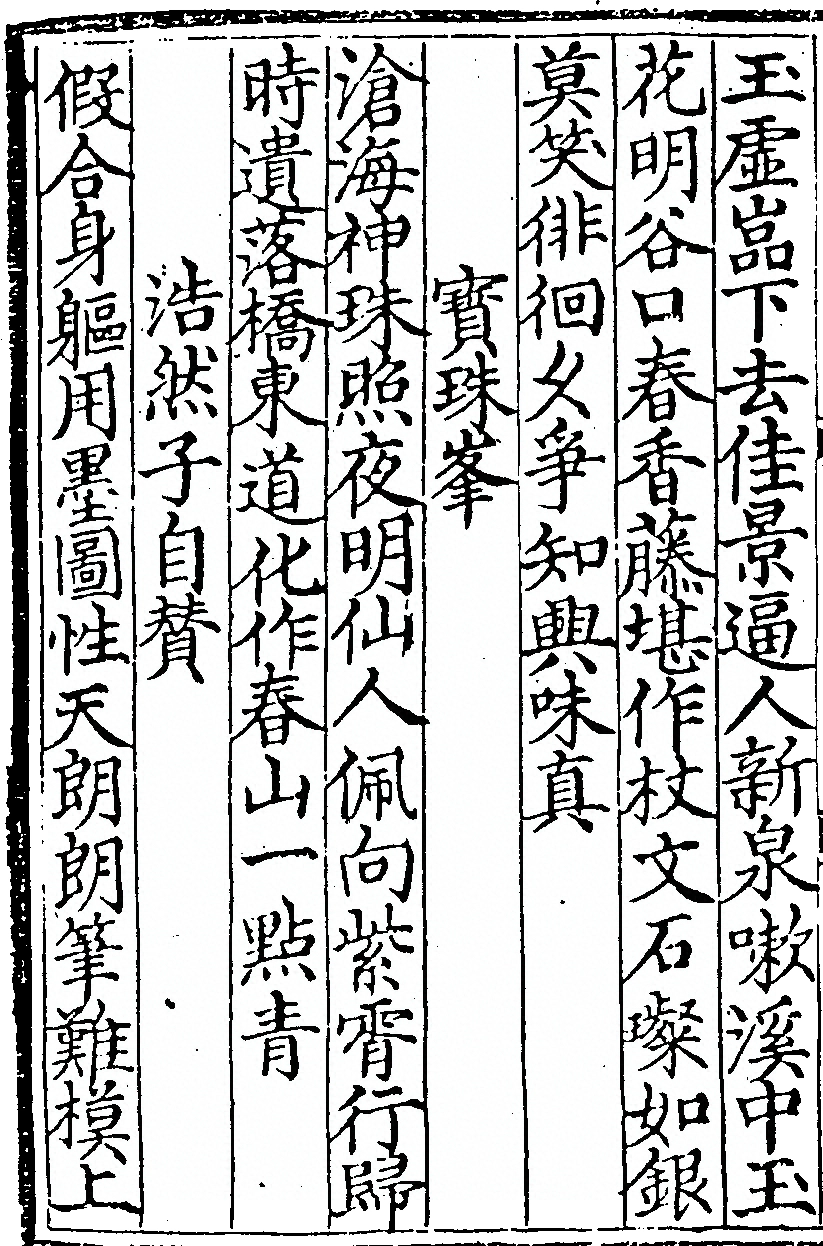 玉虛嵓下去佳景逼人新泉嗽溪中玉
花明谷口春香藤堪作杖文石璨如銀
莫笑徘徊久爭知興味真
寶珠峯
滄海神珠照夜明仙人佩向紫霄行歸
時遺落橋東道化作春山一點青
浩然子自賛
假合身軀用墨圖性天朗朗筆難模上